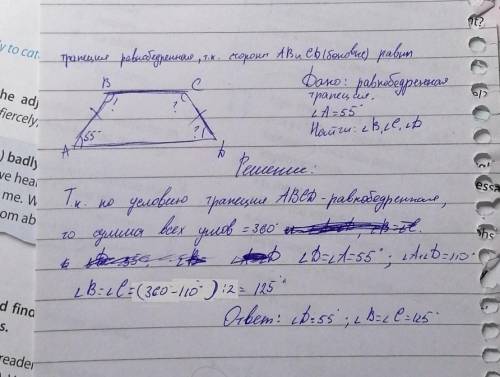 трапеция равнобедренная, т.к. стороны AB и CD (боковые) равны
B C
? ?
55° ?
A D
Дано: равнобедренная
трапеция.
∠A=55°
Найти: ∠B, ∠C, ∠D
Решение:
Т.к. по условию трапеция ABCD - равнобедренная,
то сумма всех углов = 360°
∠D=∠A=55°; ∠A+∠D=110°
∠B=∠C=(360°-110°):2=125°
Ответ: ∠D=55°; ∠B=∠C=125°
y to cat
he adj
fiercely,
) badly
ve hear
me. W
om ab
nd find
s.
reader